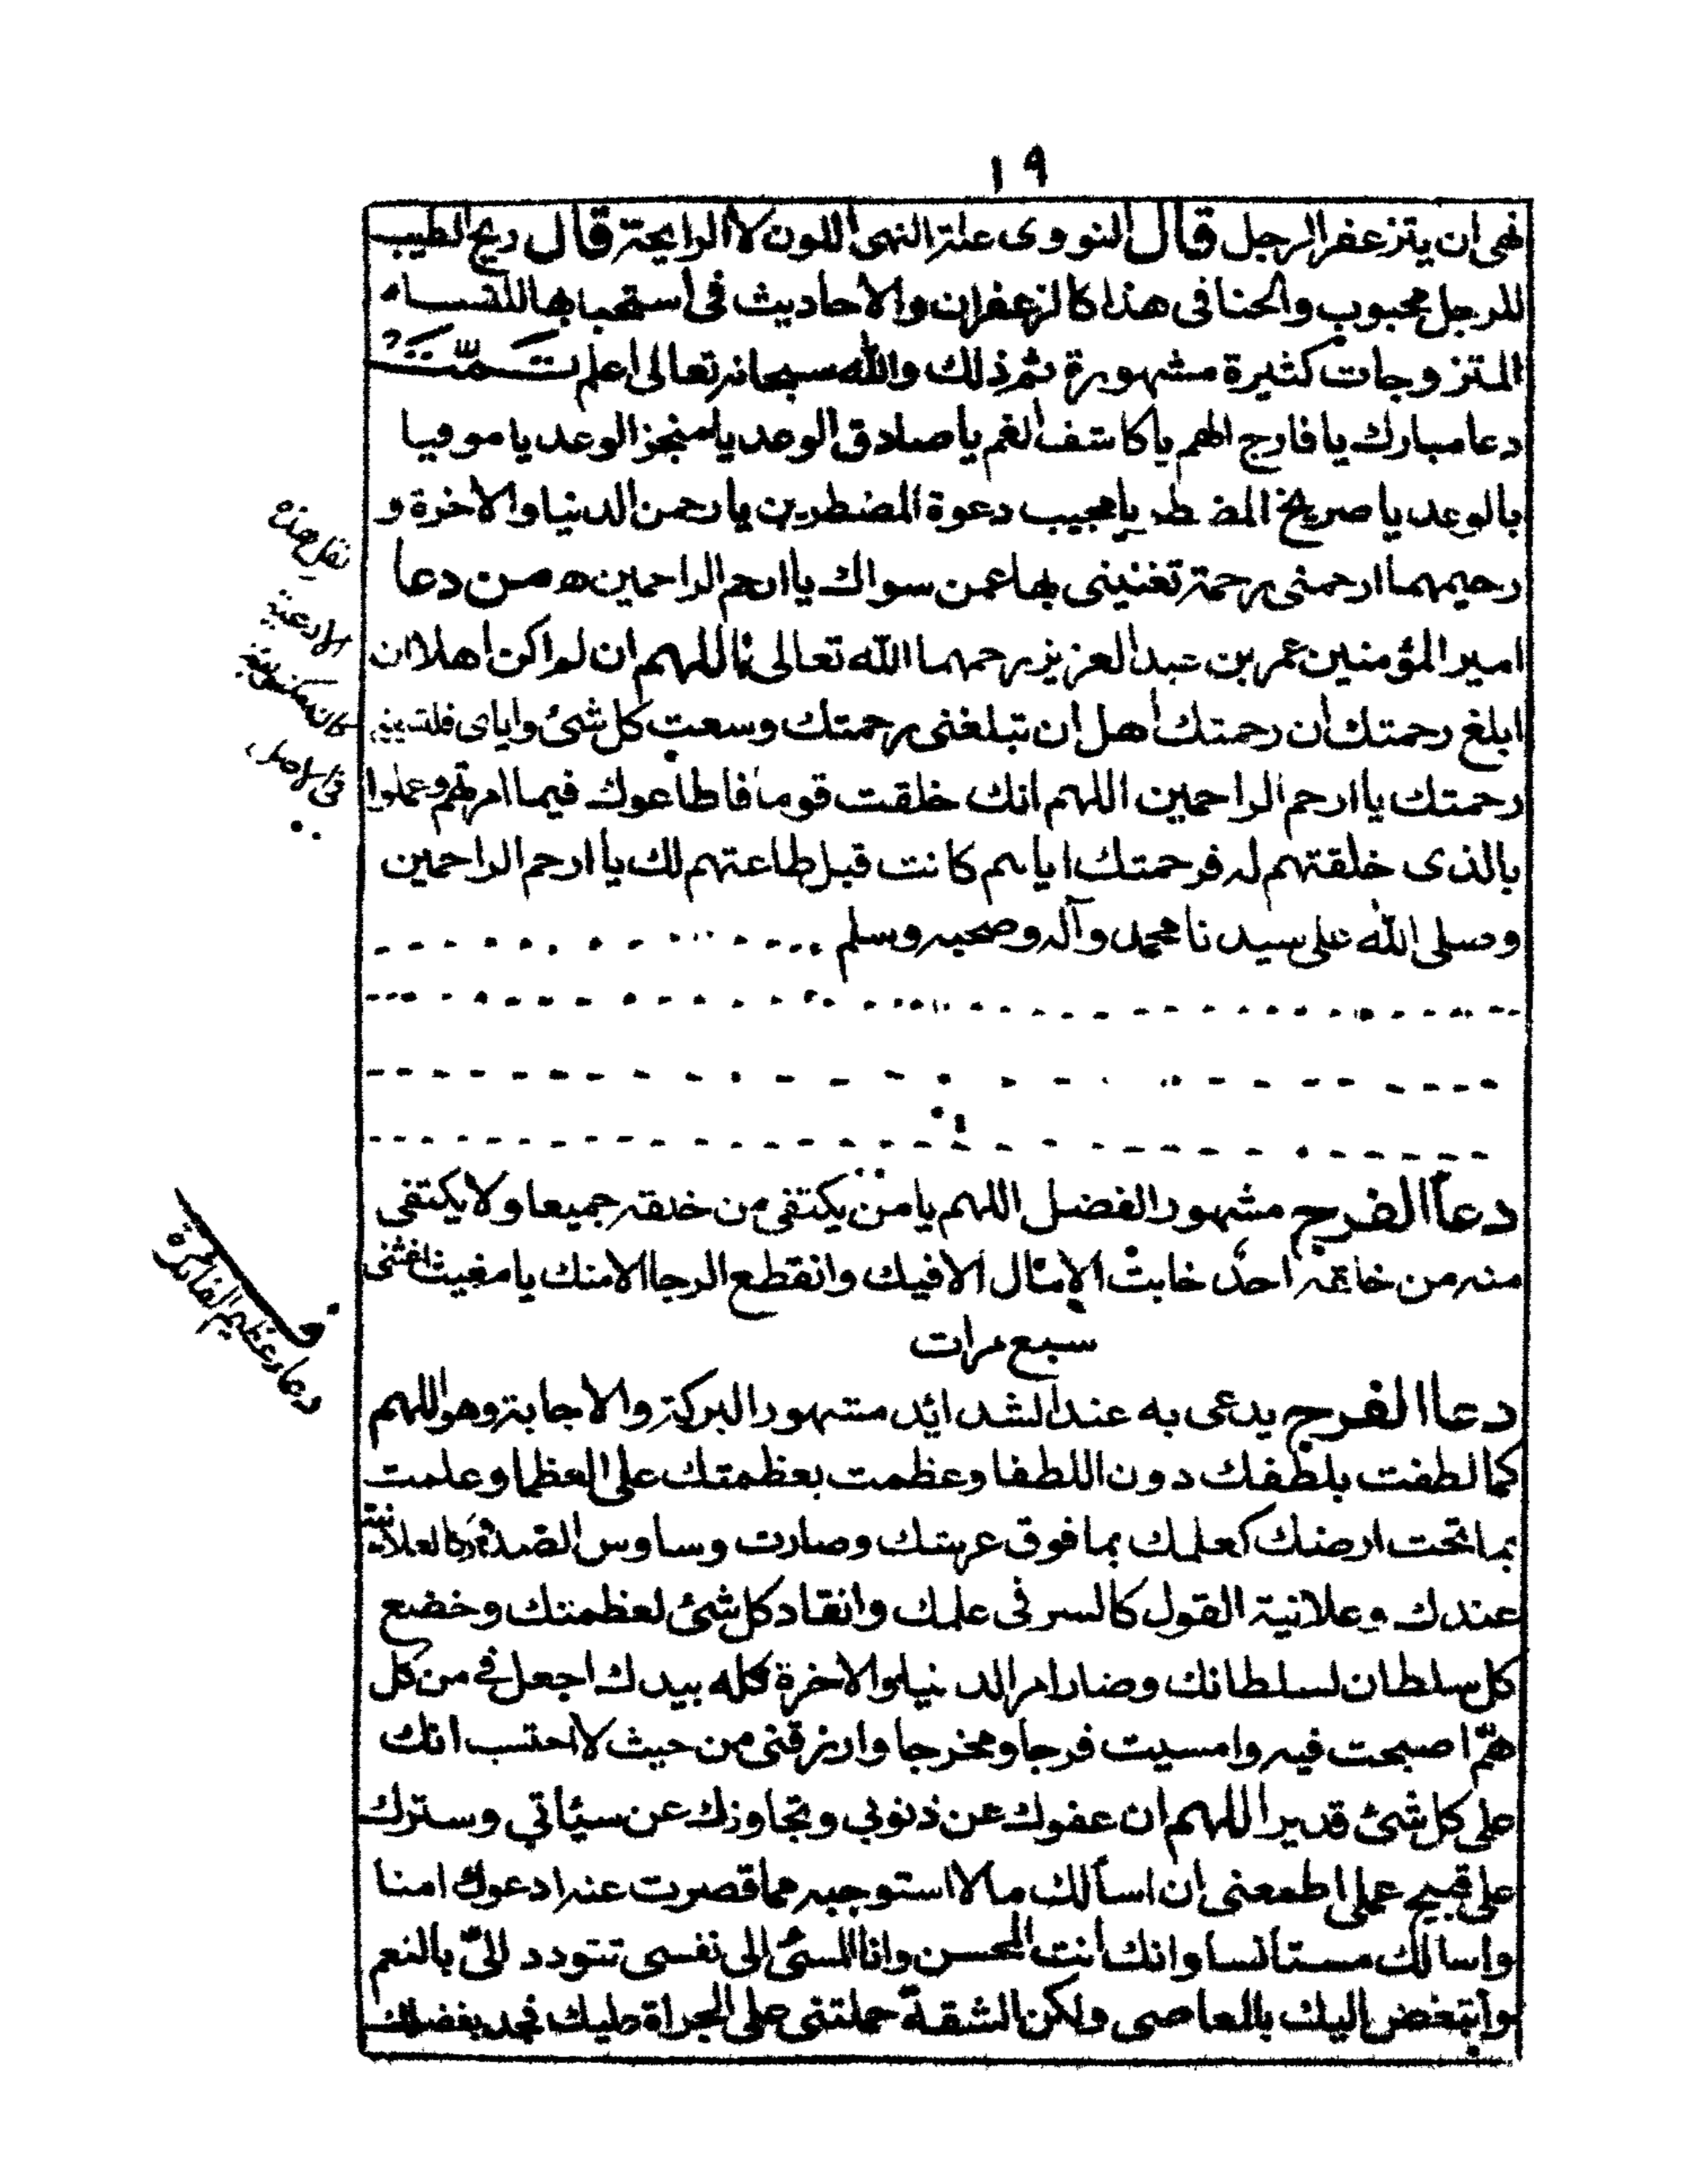 ١٩
نهى ان يتزعفر الرجل قال النووى علة النهى اللون لا الرايحة قال ريح الطيب
للرجل محبوب والحنا فى هذا كالزعفران والاحاديث فى استحبابها للنساء
المتزوجات كثيرة مشهورة ثم ذلك والله سبحانه تعالى اعلم تمت
دعا مبارك يا فارج الهم يا كاشف الغم يا صادق الوعد يا منجز الوعد يا موفيا
بالوعد يا صريخ المضطر يا مجيب دعوة المضطرين يا رحمن الدنيا والاخرة و
رحيمهما ارحمنى برحمة تغنينى بها عمن سواك يا ارحم الراحمين ه من دعا
امير المؤمنين عمر بن عبد العزيز رحمهما الله تعالى اللهم ان لم اكن اهلا ان
ابلغ رحمتك ان رحمتك اهل ان تبلغنى برحمتك وسعت كل شئ واياى فلتسعنى
رحمتك يا ارحم الراحمين اللهم انك خلقت قوما فاطاعوك فيما امرتهم وعملوا
بالذى خلقتهم له فرحمتك اياهم كانت قبل طاعتهم لك يا ارحم الراحمين
وصلى الله على سيدنا محمد وآله وصحبه وسلم
نقل هذه
الادعية
كان مكتوبة
فى الاصل
دعآ الفرج مشهور الفضل اللهم يا من يكتفى من خلقه جميعا ولا يكتفى
منه من خلقه احد خابت الامال الا فيك وانقطع الرجا الا منك يا مغيث اغثنى
سبع مرات
ف
دعاء عظيم الفائدة
دعا الفرج يدعى به عند الشدائد مشهور البركة والاجابة وهو اللهم
كما لطفت بلطفك دون اللطفا وعظمت بعظمتك على العظما وعلمت
بما تحت ارضك كعلمك بما فوق عرشك وصارت وساوس الصدور كالعلانية
عندك وعلانية القول كالسر فى علمك وانقاد كل شئ لعظمتك وخضع
كل سلطان لسلطانك وصار امر الدنيا والاخرة كله بيدك اجعل لى من كل
همّ اصبحت فيه وامسيت فرجا ومخرجا وارزقنى من حيث لا احتسب انك
على كل شئ قدير اللهم ان عفوك عن ذنوبي وتجاوزك عن سيئاتي وسترك
على قبيح عملى اطمعنى ان اسألك ما لا استوجبه مما قصرت عنه ادعوك امنا
واسالك مستانسا وانك انت المحسن وانا المسئ الى نفسى تتودد الىّ بالنعم
واتبغض اليك بالمعاصى ولكن الثقة حملتنى على الجراة عليك فجد بفضلك